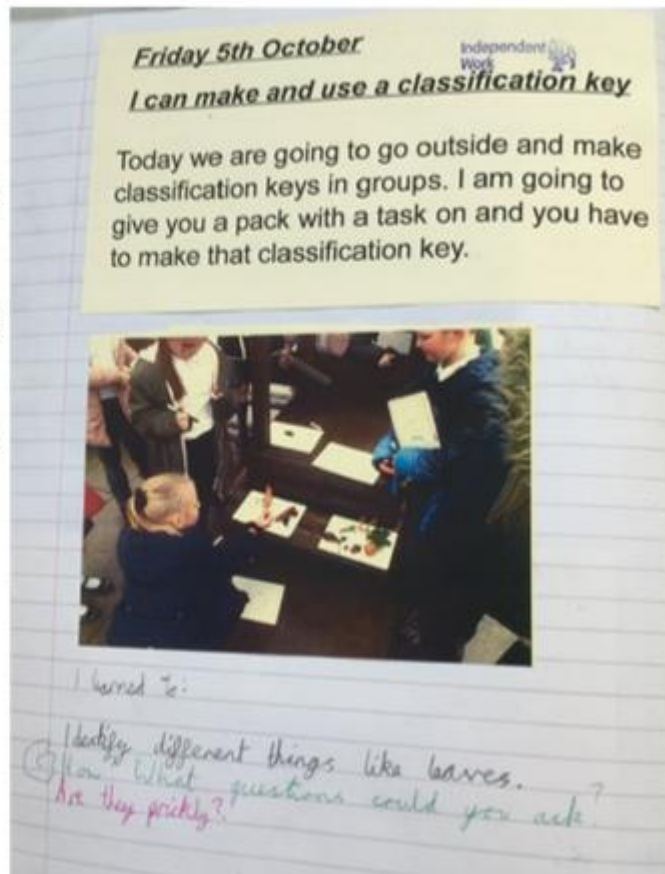 Friday 5th October
Independent
Work
I can make and use a classification key
Today we are going to go outside and make
classification keys in groups. I am going to
give you a pack with a task on and you have
to make that classification key.
I learned to:
Identify different things like leaves.
How? What questions could you ask?
Are they prickly?